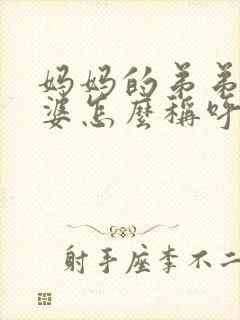 妈妈的弟弟
婆怎麽稱呼
射手座李不二